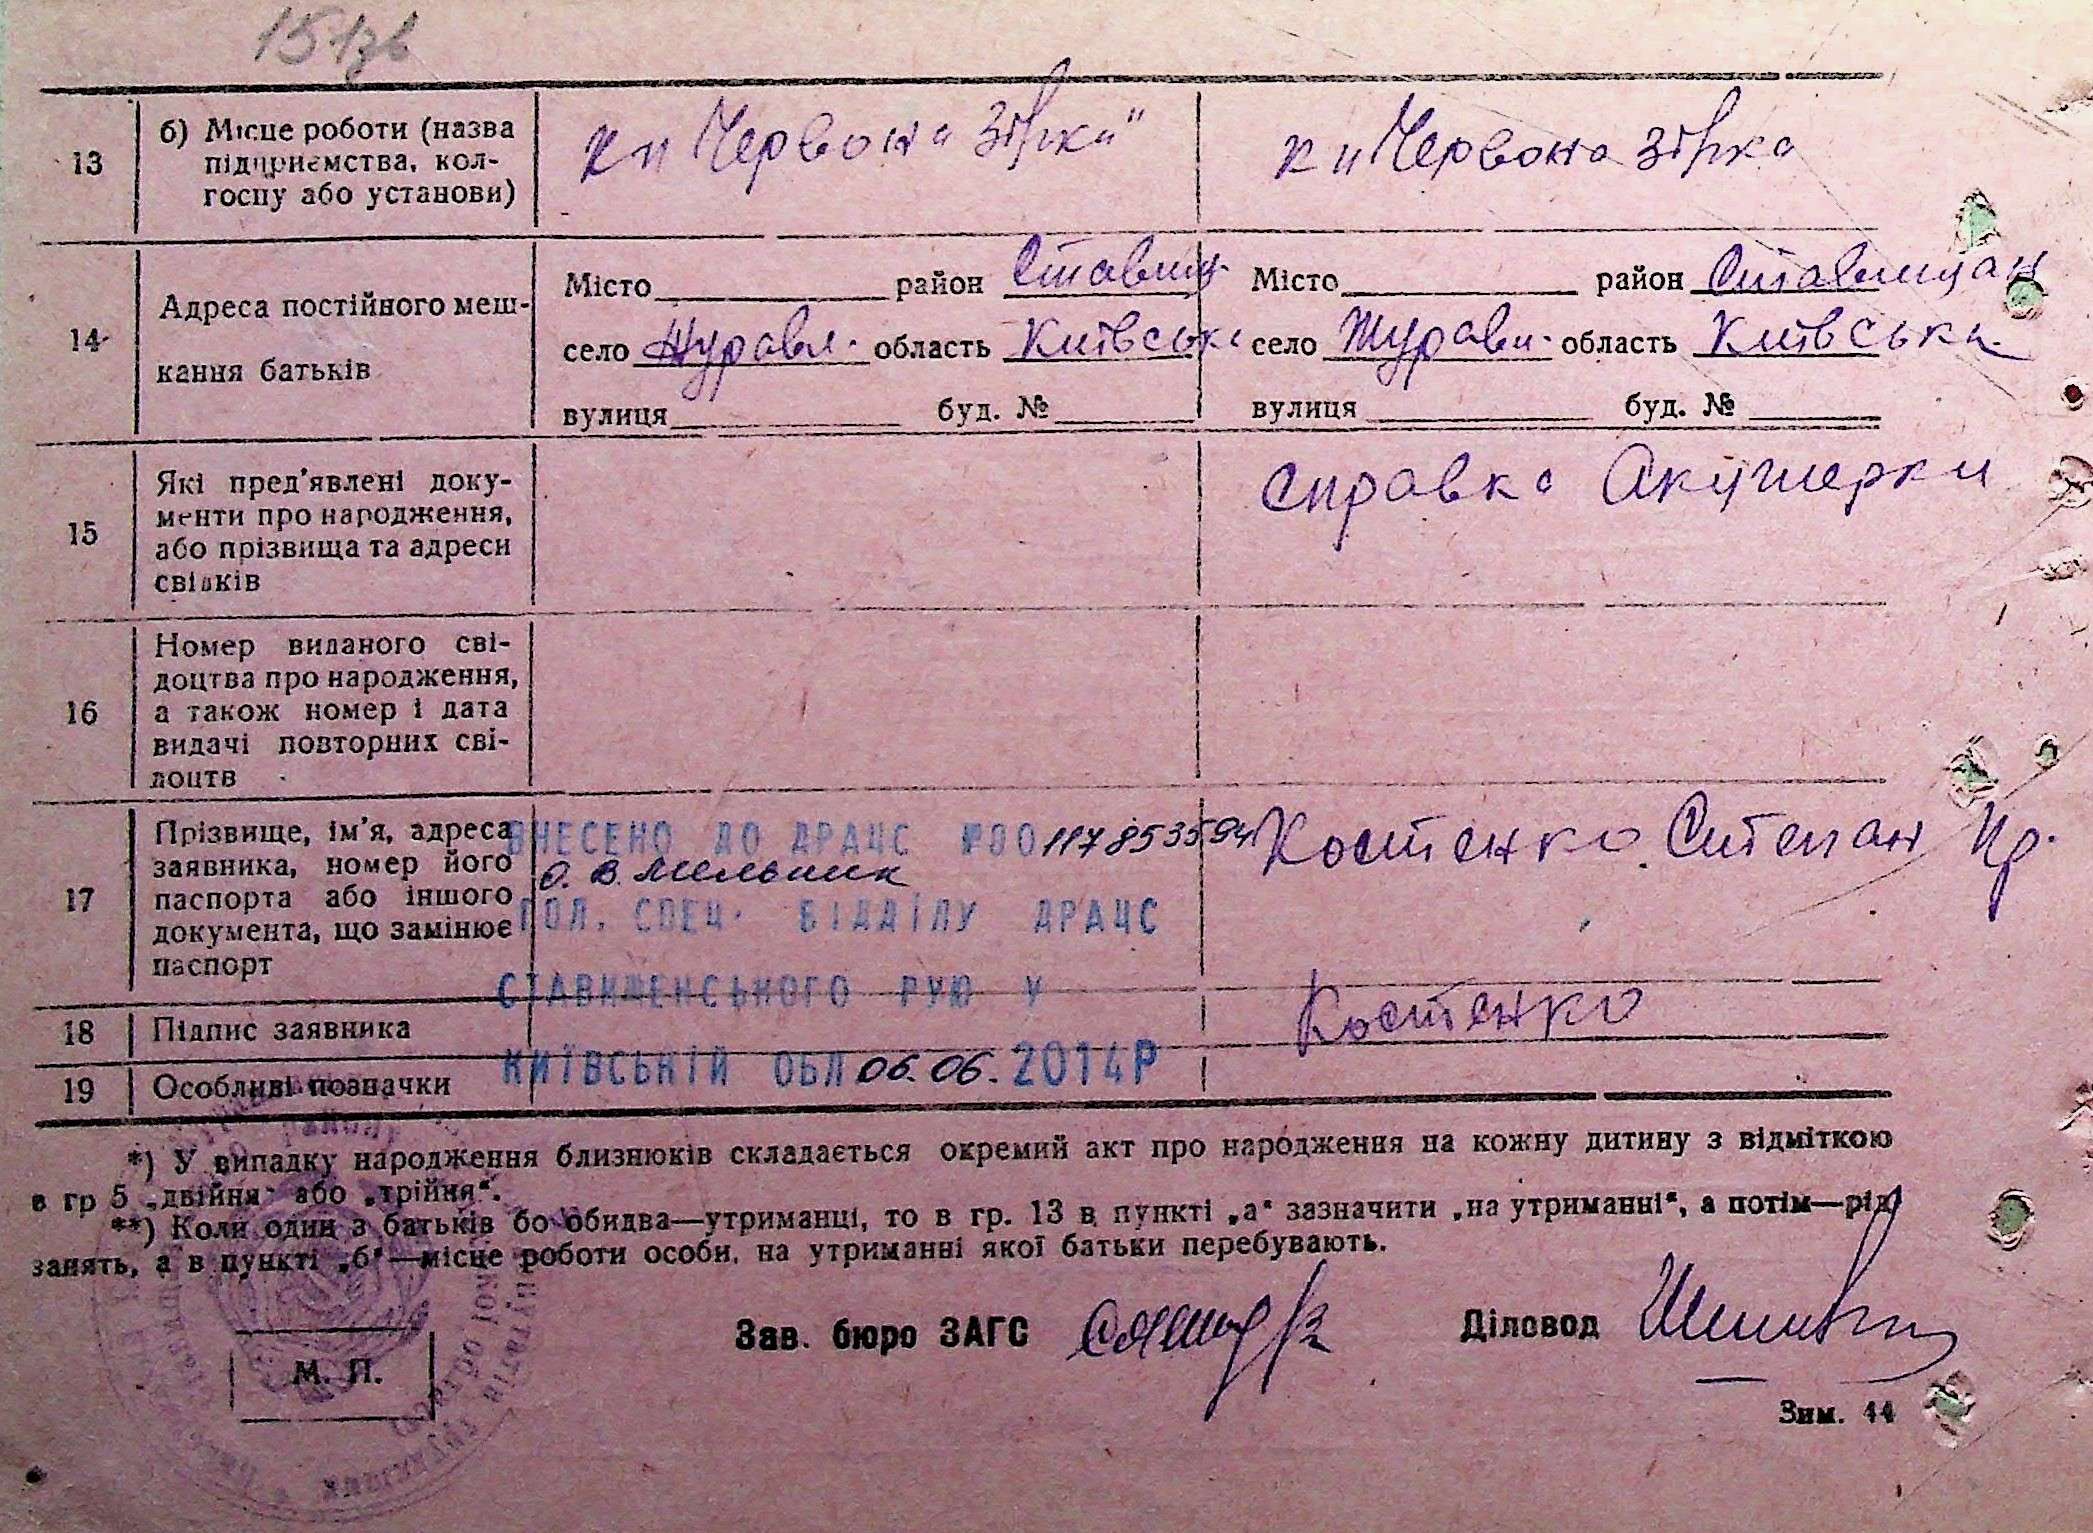 151зв
13
б) Місце роботи (назва
підприємства, кол-
госпу або установи)
к "Червона зірка"
к "Червона зірка
14
Адреса постійного меш-
кання батьків
Місто район Ставищ.
село Журавл. область Київська
вулиця буд. №
Місто район Ставищан
село Журавл. область Київська
вулиця буд. №
15
Які пред'явлені доку-
менти про народження,
або прізвища та адреси
свідків
Справка Акушерки
16
Номер виданого сві-
доцтва про народження,
а також номер і дата
видачі повторних сві-
доцтв
17
Прізвище, ім'я, адреса
заявника, номер його
паспорта або іншого
документа, що замінює
паспорт
ВНЕСЕНО ДО ДРАЦС №00117853594
О. В. Мельник
ГОЛ. СПЕЦ. ВІДДІЛУ ДРАЦС
СТАВИЩЕНСЬКОГО РУЮ У
КИЇВСЬКІЙ ОБЛ 06.06.2014Р
Костенко Степан Пр.
18
Підпис заявника
Костенко
19
Особливі позначки
*) У випадку народження близнюків складається окремий акт про народження на кожну дитину з відміткою
в гр 5 „двійня" або „трійня".
**) Коли один з батьків бо обидва—утриманці, то в гр. 13 в пункті „а" зазначити „на утриманні", а потім—рід
занять, а в пункті „б"—місце роботи особи, на утриманні якої батьки перебувають.
Зав. бюро ЗАГС
Діловод
М. П.
Зим. 44